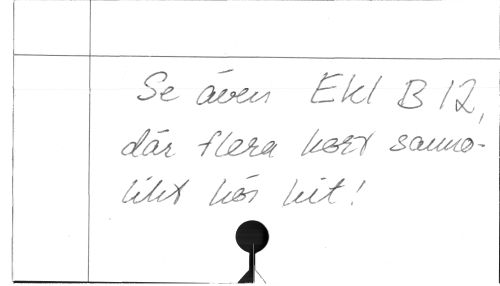 Se även Ekl B 12,
där flera kort sanno-
likt hör hit!